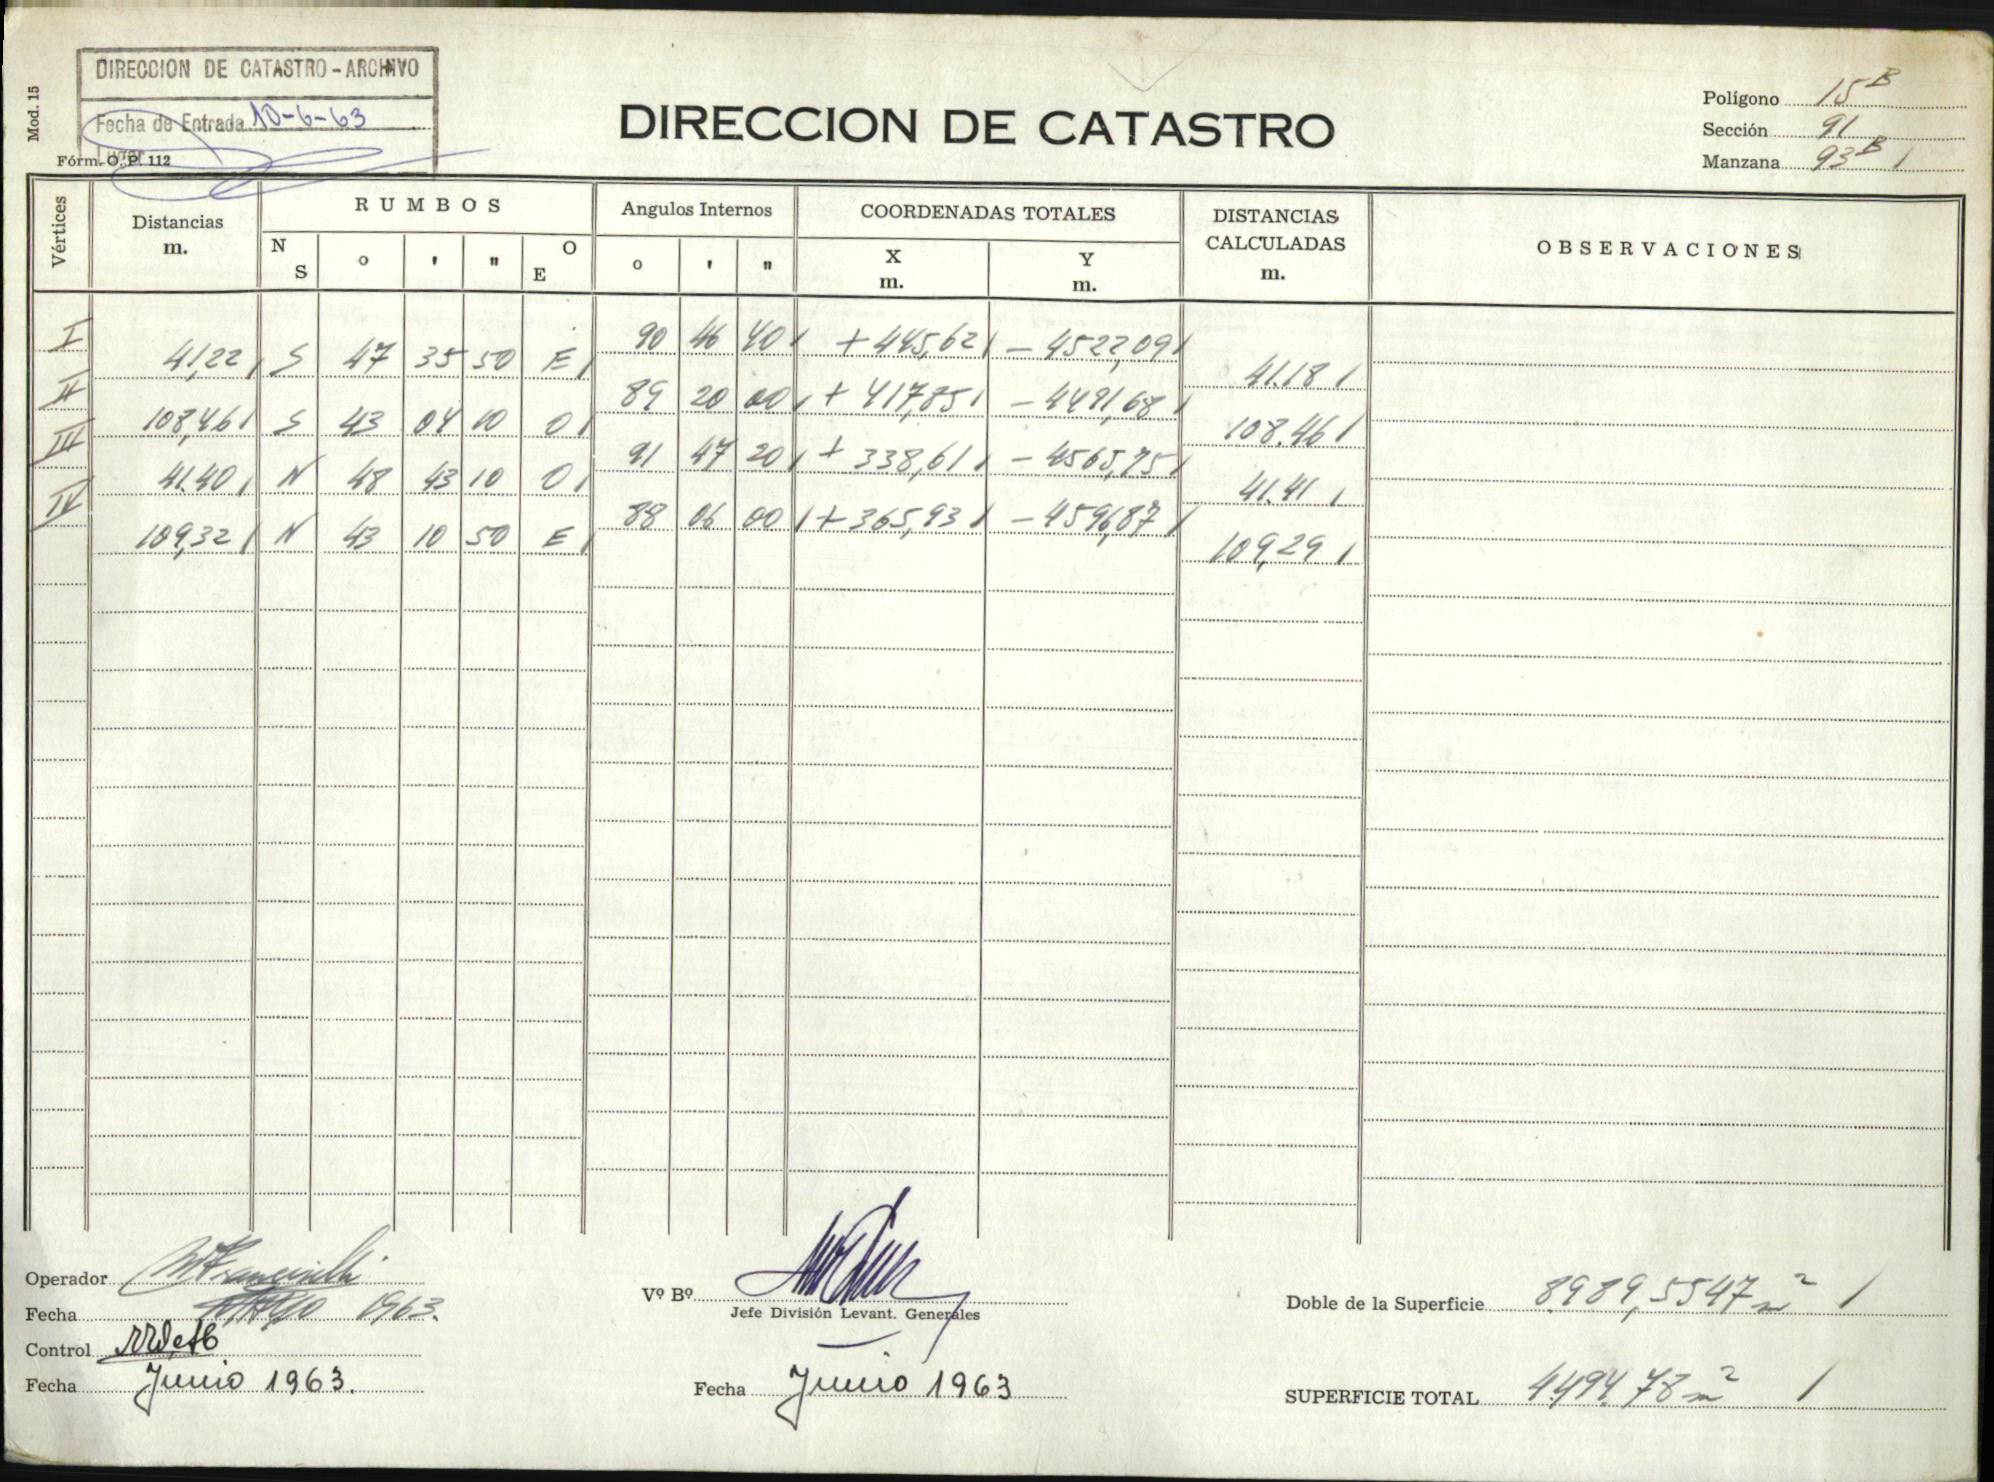 DIRECCION DE CATASTRO - ARCHIVO
Fecha de Entrada 10-6-63
Mod. 15
Fórm. O. P. 112
DIRECCION DE CATASTRO
Polígono 15 B
Sección 91
Manzana 93 B /
Vértices Distancias m. RUMBOS Angulos Internos COORDENADAS TOTALES DISTANCIAS CALCULADAS m. OBSERVACIONES
N S ° ' " O E ° ' " X m. Y m.
I 90 46 40 / + 445,62 / - 4522,09 /
41,22 / S 47 35 50 E / 41.18 /
II 89 20 00 / + 417,85 / - 4491,68 /
108,46 / S 43 04 10 O / 108.46 /
III 91 47 20 / + 338,61 / - 4565,75 /
41.40 / N 48 43 10 O / 41.41 /
IV 88 06 00 / + 365,93 / - 4596,87 /
109,32 / N 43 10 50 E / 109,29 /
Operador
Fecha 1963.
Control
Fecha Junio 1963.
Vº Bº
Jefe División Levant. Generales
Fecha Junio 1963
Doble de la Superficie 8989,5547 m² /
SUPERFICIE TOTAL 4494.78 m² /